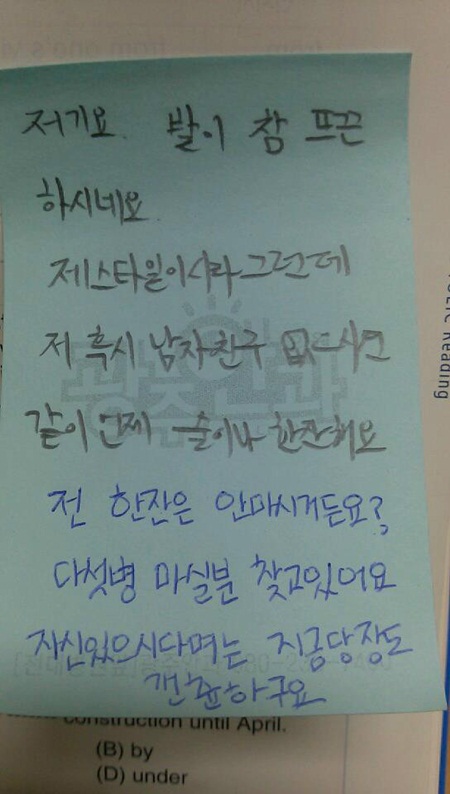 저기요. 발이 참 뜨끈
하시네요
제스타일이시라 그런데
저 혹시 남자친구 없으시면
같이 언제 술이나 한잔해요
전 한잔은 안마시거든요?
다섯병 마실분 찾고있어요
자신있으시다며는 지금당장도
갠춘하구요
construction until April.
(B) by
(D) under
TOEIC Reading